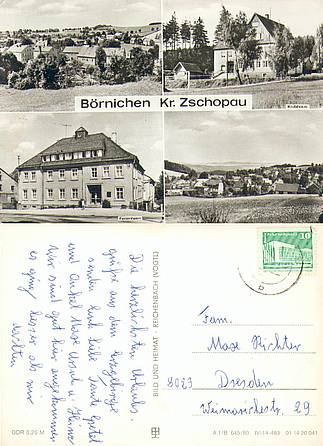 Börnichen Kr. Zschopau
Ferienheim
Die herzlichsten Urlaubs-
grüße aus dem Erzgebirge
senden Euch Tante Gretel
und Onkel Max Ursul u. Heinz
Wir sind gut hier angekommen
es ging besser als wir
dachten
BILD UND HEIMAT · REICHENBACH (VOGTL)
10
Fam.
Max Richter
8023 Dresden
Weimarische str. 29
DDR 0,25 M
A 1/B 645/80 IV-14-483 01 14 20 041